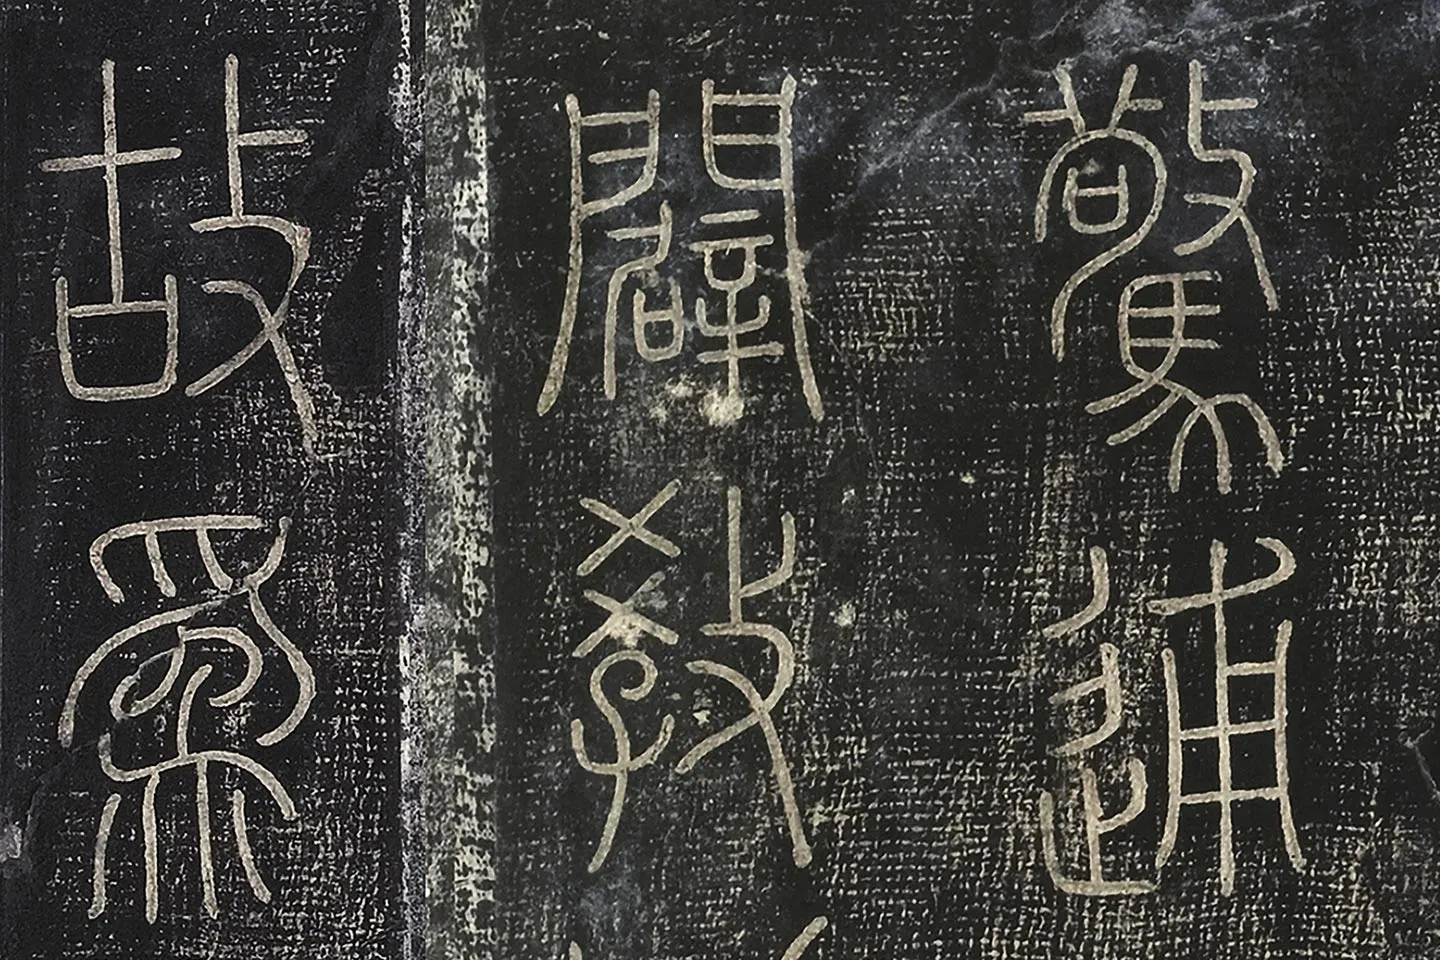 驚逋
闢教
故爲